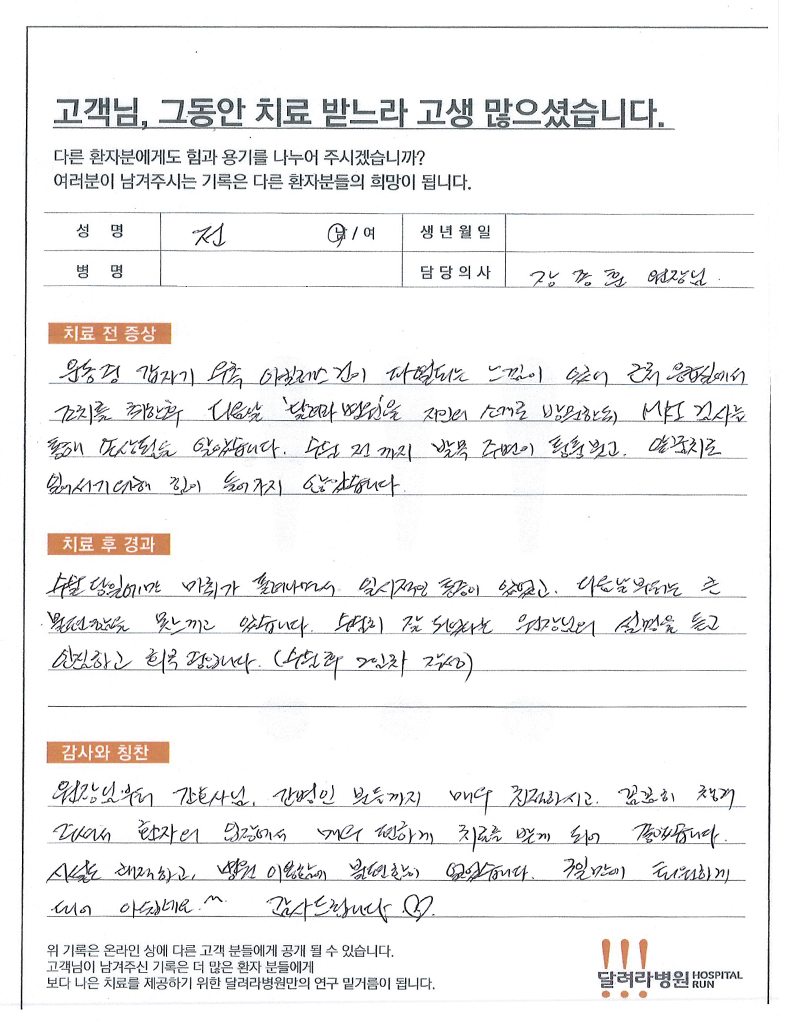 고객님, 그동안 치료 받느라 고생 많으셨습니다.
다른 환자분에게도 힘과 용기를 나누어 주시겠습니까?
여러분이 남겨주시는 기록은 다른 환자분들의 희망이 됩니다.
성 명 전 남 / 여 생년월일
병 명 담당의사 장종훈 원장님.
치료 전 증상
운동 중 갑자기 우측 아킬레스건이 파열되는 느낌이 있어 근처 응급실에서
조치를 취한후 다음날 '달려라 병원'을 지인의 소개로 방문한뒤 MRI 검사를
통해 손상된걸 알았습니다. 수술 전 까지 발목 주변이 붓고, 발뒤꿈치로
일어서기 위해 힘이 들어가지 않았습니다.
치료 후 경과
수술 당일에만 마취가 풀려나면서 일시적인 통증이 있었고, 다음날 부터는 큰
불편함을 못느끼고 있습니다. 수술이 잘 되었다는 원장님의 설명을 듣고
안심하고 회복 중입니다. (수술 후 2일차 작성)
감사와 칭찬
원장님부터 간호사님, 간병인 분들까지 매우 친절하시고, 꼼꼼히 챙겨
주셔서 환자의 입장에서 매우 편하게 치료를 받게 되어 좋았습니다.
시설도 쾌적하고, 병원 이용함에 불편함이 없었습니다. 3일만에 퇴원하게
되어 아쉽네요.^^ 감사드립니다 ♡.
위 기록은 온라인 상에 다른 고객 분들에게 공개 될 수 있습니다.
고객님이 남겨주신 기록은 더 많은 환자 분들에게
보다 나은 치료를 제공하기 위한 달려라병원만의 연구 밑거름이 됩니다.
달려라병원 HOSPITAL RUN